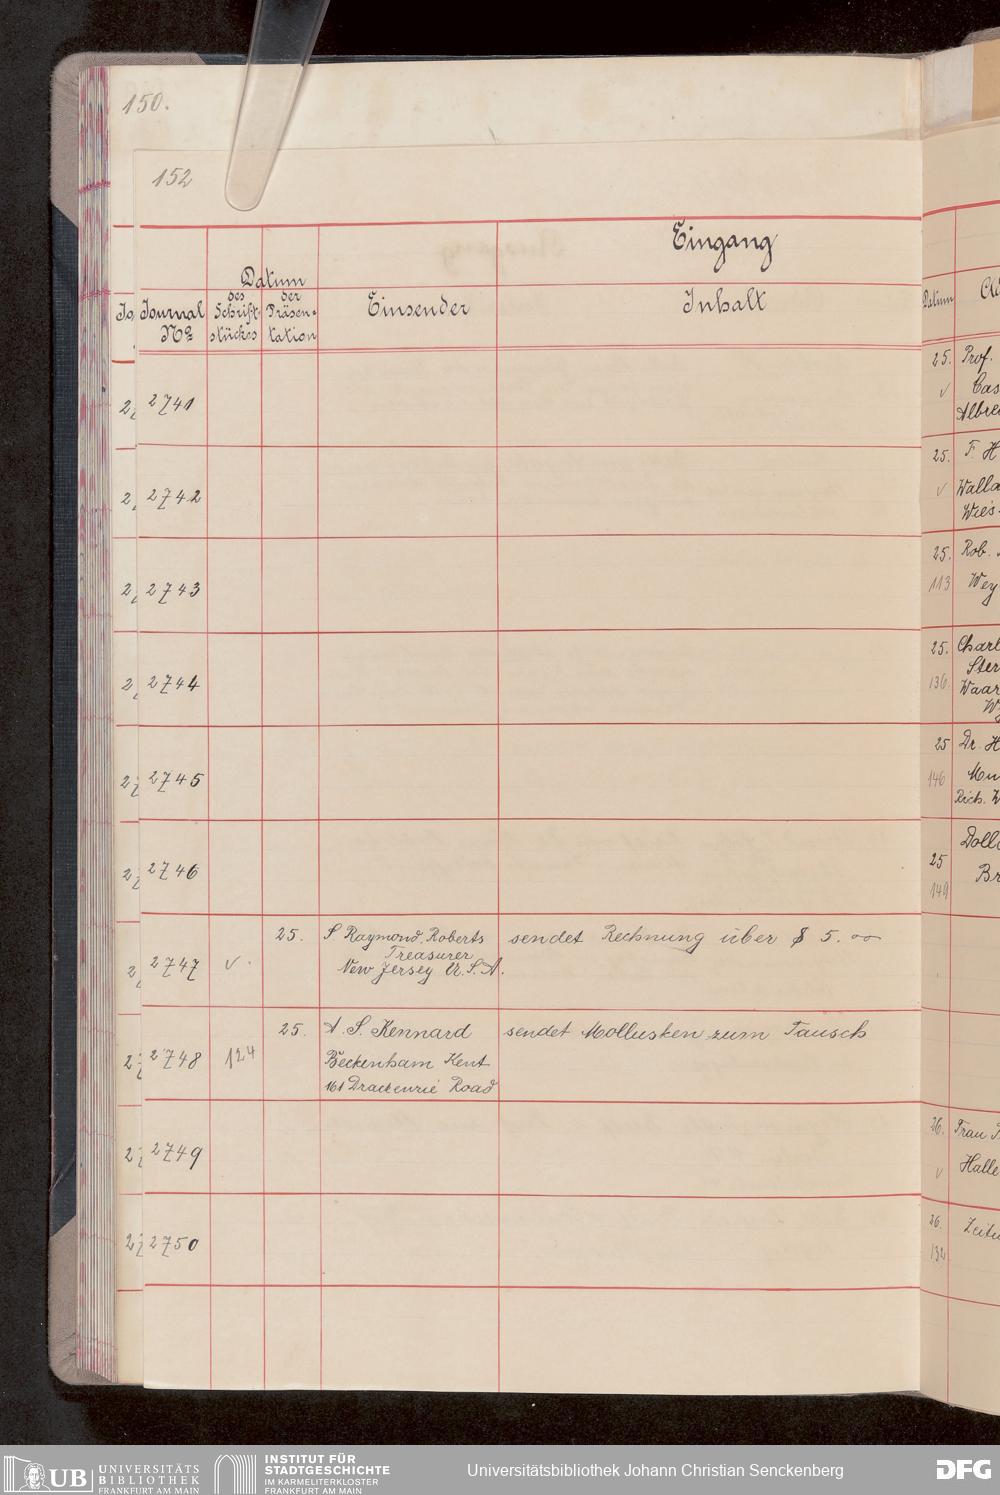 150.
152
Eingang
Datum
Journal
No
des
Schrift-
stückes
der
Präsen-
tation
Einsender
Inhalt
2741
2742
2743
2744
2745
2746
2747
√.
25.
S. Raymond Roberts
Treasurer
New Jersey U.S.A.
sendet Rechnung über $ 5.00
2748
124
25.
A. S. Kennard
Beckenham Kent
161 Road
sendet Mollusken zum Tausch
2749
2750
Datum
25.
Prof.
√
25.
F. H
√
25.
Rob.
113
25.
136.
25
Dr. H
146
25
149
26.
Frau
√
Halle
26.
132
UB
UNIVERSITÄTS
BIBLIOTHEK
FRANKFURT AM MAIN
INSTITUT FÜR
STADTGESCHICHTE
IM KARMELITERKLOSTER
FRANKFURT AM MAIN
Universitätsbibliothek Johann Christian Senckenberg
DFG